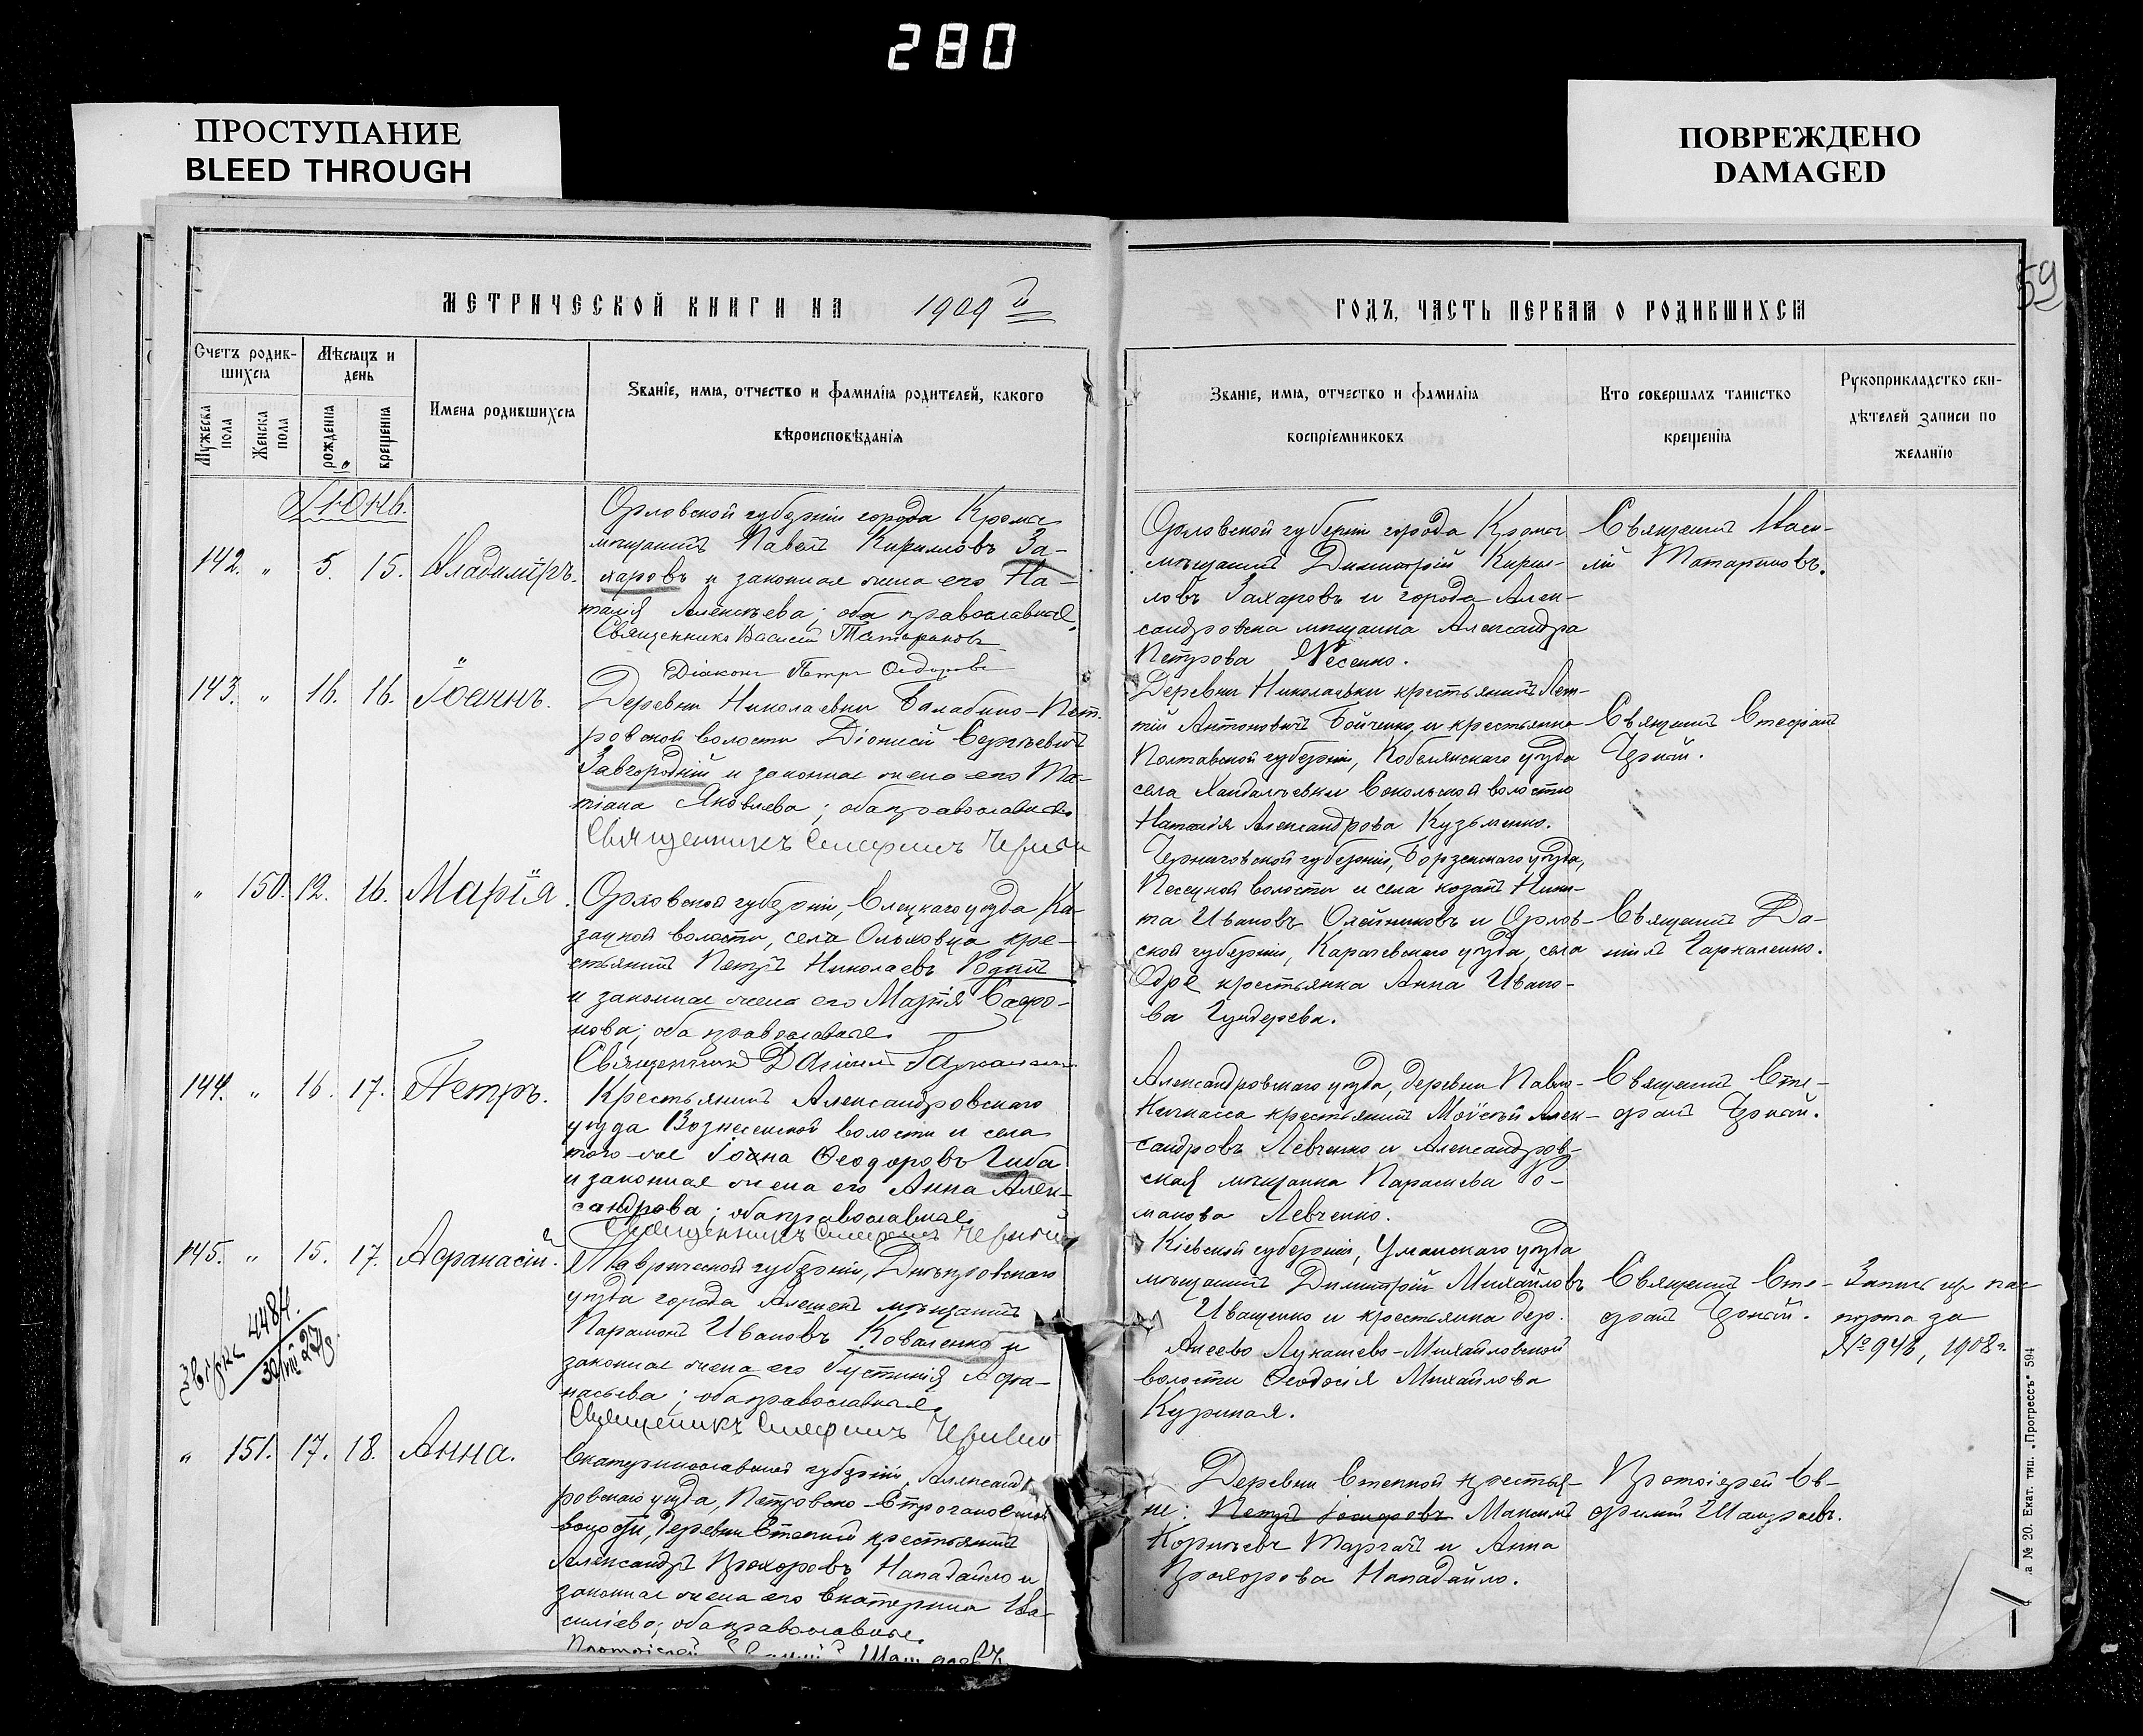 280
ПРОСТУПАНИЕ
BLEED THROUGH
ПОВРЕЖДЕНО
DAMAGED
59
МЕТРИЧЕСКОЙ КНИГИ НА 1909й
ГОДЪ, ЧАСТЬ ПЕРВАЯ О РОДИВШИХСЯ
Счетъ родив-
шихся
Мѣсяцъ и
день
Имена родившихся
Званіе, имя, отчество и фамилія родителей, какого
вѣроисповѣданія
Мужеска
пола
Женска
пола
рожденія
крещенія
Званіе, имя, отчество и фамилія
воспріемниковъ
Кто совершалъ таинство
крещенія
Рукоприкладство сви-
дѣтелей записи по
желанію
Іюнь.
142. " 5. 15. Владиміръ.
Орловской губерніи города Кромы
мѣщанинъ Павелъ Кирилловъ За-
харовъ и законная жена его На-
талія Алексѣева; оба православные.
Священникъ Василій Татариновъ
Діаконъ Петръ Ѳедоровъ
Орловской губерніи города Кромы
мѣщанинъ Димитрій Кирил-
ловъ Захаровъ и города Алек-
сандровска мѣщанка Александра
Петрова
Священникъ Васи-
лій Татариновъ.
143. " 16. 16. Іоаннъ.
Деревни Николаевки Балабино-Пет-
ровской волости Діонисій Сергѣевичъ
Завгородній и законная жена его Та-
тіана Яковлева; оба православные
Священникъ Стефанъ Черный
Деревни Николаевки крестьянинъ
Антоновичъ Бойченко и крестьянка
Полтавской губерніи, Кобелякскаго уѣзда
села Хандалѣевки Сокольской волости
Наталія Александрова Кузьменко.
Священникъ Стефанъ
Черный.
" 150. 12. 16. Марія.
Орловской губерніи, Елецкаго уѣзда Ка-
зацкой волости, села Ольховца кре-
стьянинъ Петръ Николаевъ
и законная жена его Марія Сафро-
нова; оба православные.
Священникъ Даніилъ Гаркаленко
Черниговской губерніи, Борзенскаго уѣзда,
волости и села козакъ Ники-
та Ивановъ Олейниковъ и Орлов-
ской губерніи, Карачевскаго уѣзда, села
крестьянка Анна Ивано-
ва Гундерева.
Священникъ Да-
ніилъ Гаркаленко.
144. " 16. 17. Петръ.
Крестьянинъ Александровскаго
уѣзда Вознесенской волости и села
того-же Іоанна Ѳеодоровъ Гиба
и законная жена его Анна Алек-
сандрова; оба православные.
Священникъ Стефанъ Черный
Александровскаго уѣзда, деревни Павло-
Кичкасса крестьянинъ Моѵсей Алек-
сандровъ Левченко и Александров-
ская мѣщанка Параскева Ро-
манова Левченко.
Священникъ Сте-
фанъ Черный.
145. " 15. 17. Аѳанасій.
Таврической губерніи, Днѣпровскаго
уѣзда города Алешекъ мѣщанинъ
Парамонъ Ивановъ Коваленко и
законная жена его Іустинія Аѳа-
насьева; оба православные.
Священникъ Стефанъ Черный
Кіевской губерніи, Уманскаго уѣзда
мѣщанинъ Димитрій Михайловъ
Иващенко и крестьянка дер.
Лукашево-Михайловской
волости Ѳеодосія Михайлова
Куриная.
Священникъ Сте-
фанъ Черный.
Запись
порта за
№ 946, 1908 г.
4484
" 151. 17. 18. Анна.
Екатеринославской губерніи, Александ-
ровскаго уѣзда, Петровско-Строгановской
волости, деревни Степной крестьянинъ
Александръ Прохоровъ Нападайло и
законная жена его Екатерина Ва-
силіева; оба православные.
Деревни Степной крестья-
не: Петръ Максимъ
Корнѣевъ и Анна
Прохорова Нападайло.
Протоіерей Ев-
фимій
а № 20. Екат. тип. „Прогрессъ" 594